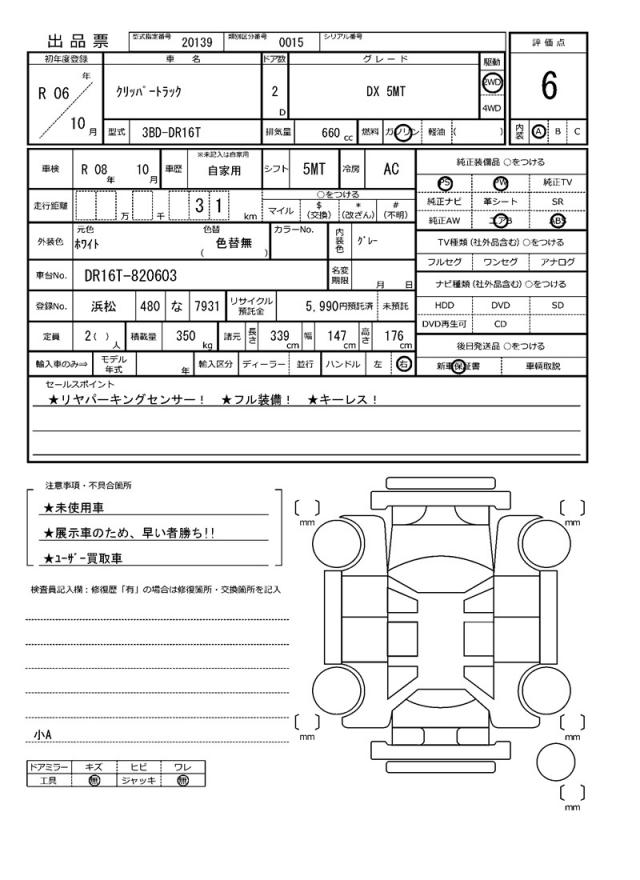 出品票 型式指定番号 20139 類別区分番号 0015 シリアル番号
評価点
初年度登録 車名 ドア数 グレード 駆動
R 06 年 クリッパートラック 2 D DX 5MT 2WD 6
4WD
10 月 型式 3BD-DR16T 排気量 660 cc 燃料 ガソリン 軽油 ( ) 内装 A B C
車検 R 08 年 10 月 車歴 ※未記入は自家用 自家用 シフト 5MT 冷房 AC 純正装備品 ○をつける
PS PW 純正TV
走行距離 万 千 3 1 km ○をつける 純正ナビ 革シート SR
マイル $(交換) *(改ざん) #(不明) 純正AW エアB ABS
外装色 元色 ホワイト 色替 色替無 ( ) カラーNo. 内装色 グレー TV種類(社外品含む)○をつける
フルセグ ワンセグ アナログ
車台No. DR16T-820603 名変期限 月 日 ナビ種類(社外品含む)○をつける
登録No. 浜松 480 な 7931 リサイクル預託金 5,990円預託済 未預託 HDD DVD SD
DVD再生可 CD
定員 2( ) 人 積載量 350 kg 諸元 長さ 339 cm 幅 147 cm 高さ 176 cm 後日発送品 ○をつける
輸入車のみ⇒ モデル年式 年 輸入区分 ディーラー 並行 ハンドル 左 右 新車保証書 車輌取説
セールスポイント
★リヤパーキングセンサー! ★フル装備! ★キーレス!
注意事項・不具合箇所
★未使用車
★展示車のため、早い者勝ち!!
★ユーザー買取車
検査員記入欄:修復歴「有」の場合は修復箇所・交換箇所を記入
小A
ドアミラー キズ ヒビ ワレ
工具 無 ジャッキ 無
〔 〕mm
〔 〕mm
〔 〕mm
〔 〕mm
〔 〕mm